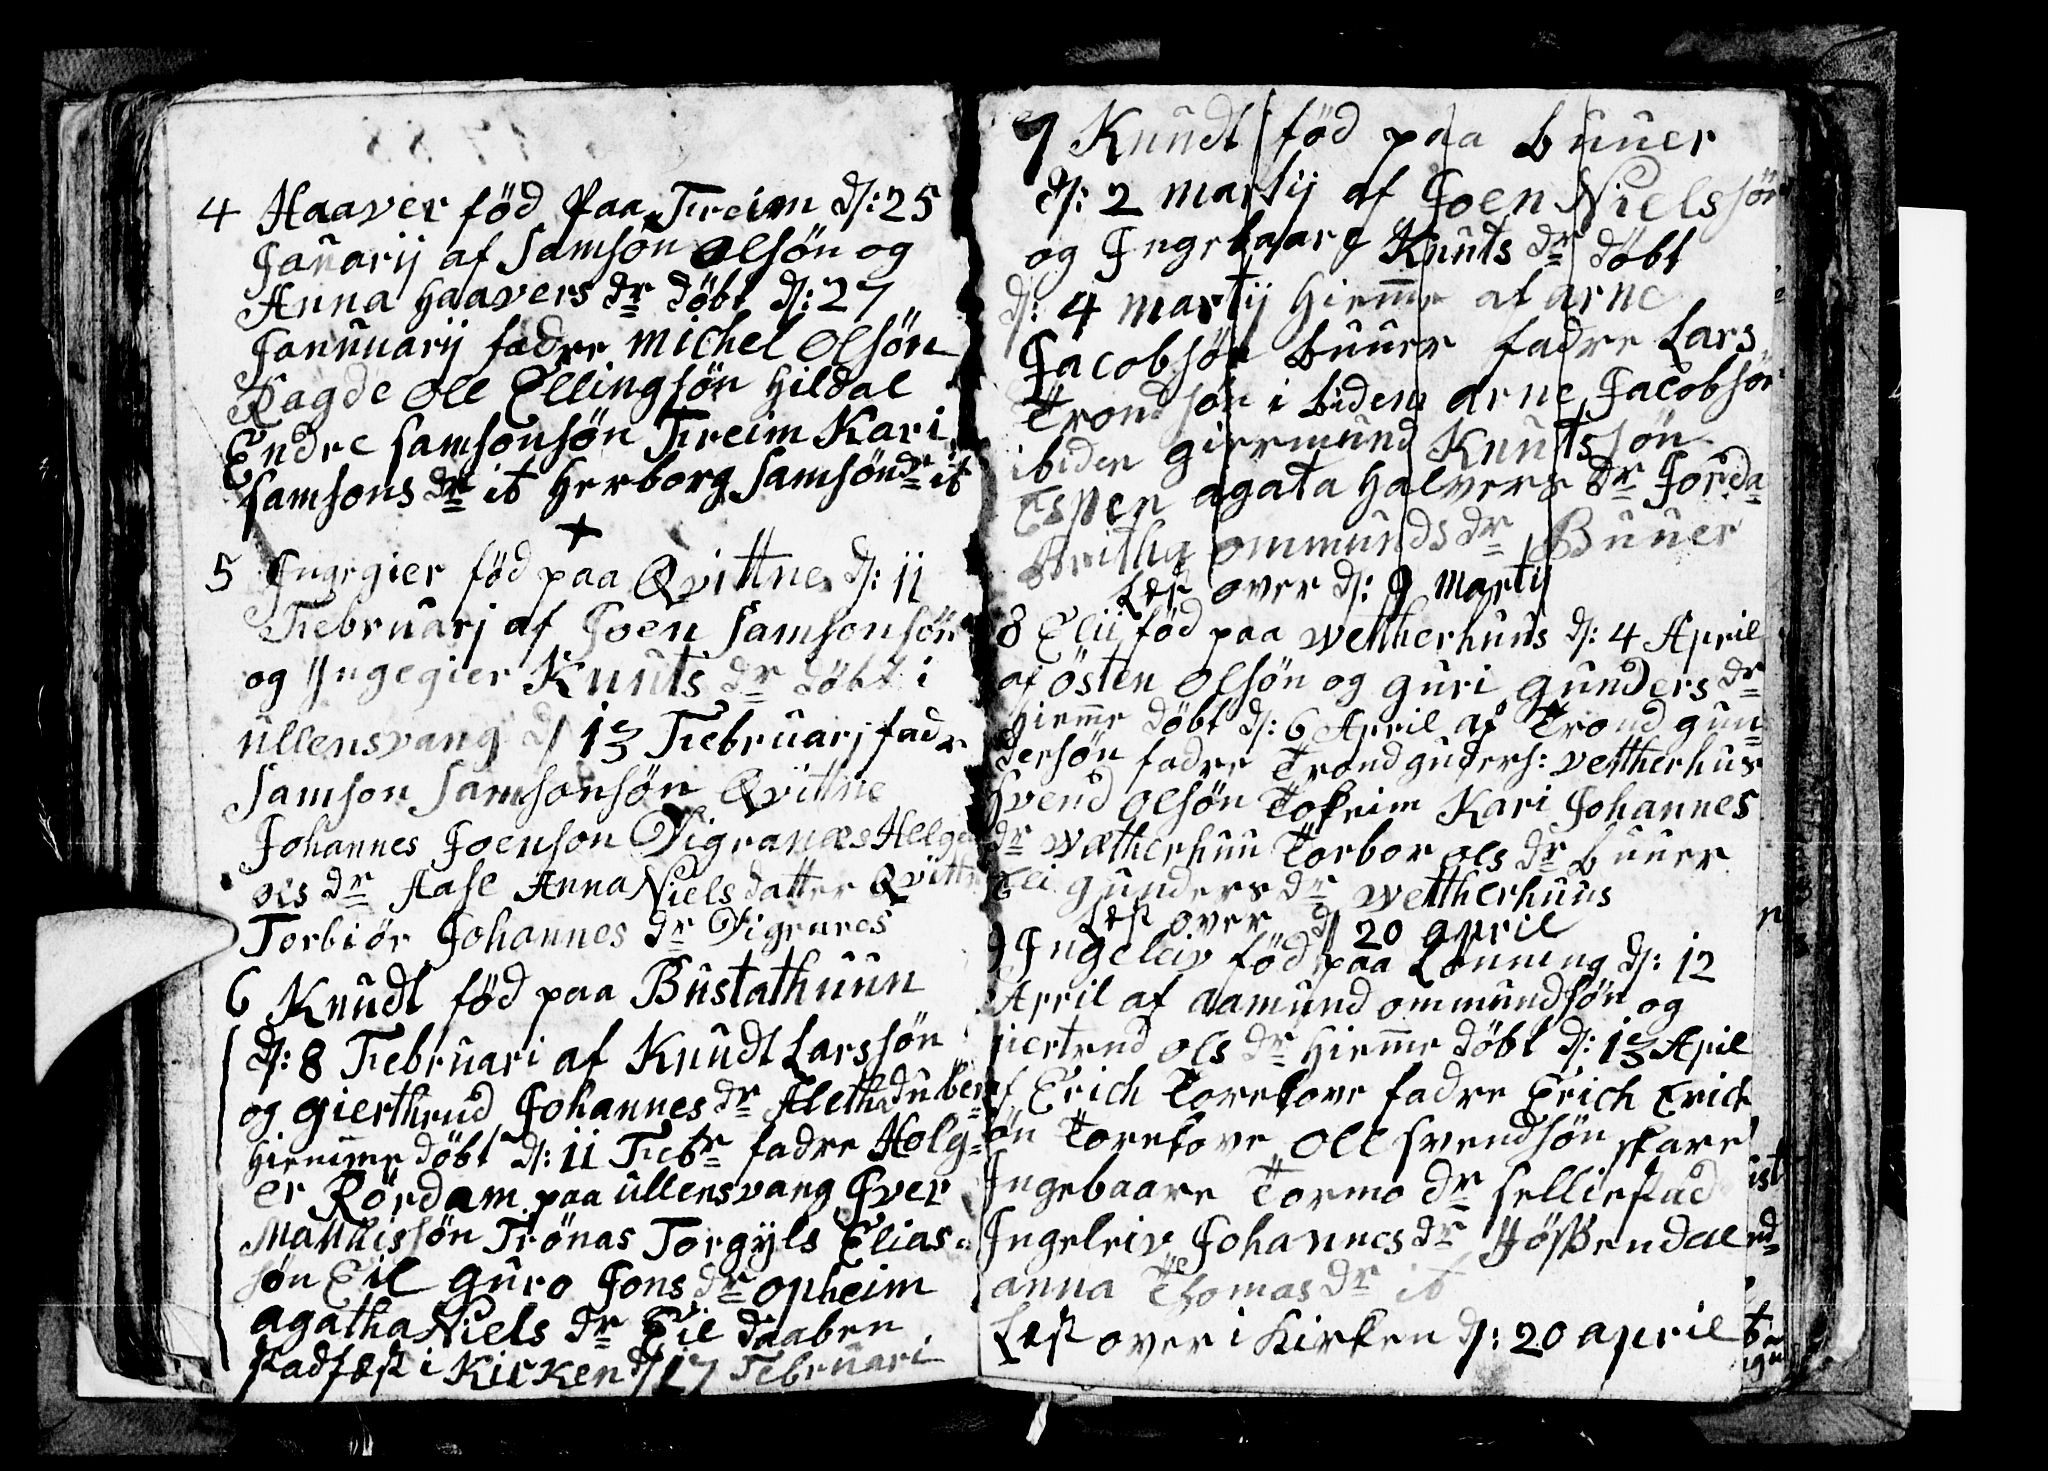 4 Haaver föd Paa Freim d/: 25
Januarij af Samson Olsön og
Anna Haavers dr döbt d/: 27
Januuarij fadre Michel Olsön
Ragde Oll Ellingsön Hildal
Endre Samsonsön Freim Kari
Samsons dr it Herborg Samsöndr it
5 Ingegier föd paa Qvittne d/: 11
Februarj af Joen Samsonsön
og Ingegier Knuts dr döbt i
ullensvang d/ 13 Februarj fadr
Samson Samsonsön Qvittne
Johannes Joenson Digranæs Helga
ols dr Aase Anna Niels datter Qvittn
Torbiör Johannes dr Digranes
6 Knudt föd paa Bustathuun
d/: 8 Februari af Knudt Larssön
og gierthrud Johannes dr Aletha duben
Hiemme döbt d/: 11 Febr fadre Holg=
er Rördam paa ullensvang Iver
Mathissön Trönas Torgyls Elias=
sön Eil guro Jons dr opheim
agatha Niels dr Eil daaben
stadfæst i Kirken d/ 17 Februari
7 Knudt föd paa buuer
d/: 2 martij af Joen Nielssön
og Ingebaare Knuts dr döbt
d/: 4 martij hiem̄e af arne
Jacobsön buuer fadre Lars
Trondsön ibidem arne Jacobsön
ibidem giermund Knutssön
Espen agata Halvers dr Jorda=
Britha ommunds dr Buuer
Læst over d/: 9 martij
8 Elii föd paa wettherhuus d/: 4 April
af östen olsön og guri gunders dr
hiem̄e döbt d/: 6 April af Trond gun=
dersön fadre Trond guders: vettherhus
Svend olsön Tokeim Kari Johannes
dr wætherhuu Torbor ols dr buuer
Eli gunders dr wettherhuus
Læst over d/ 20 april
9 Ingeleiv föd paa Lonning d/: 12
April af aamund ommundsön og
giertrud ols dr Hiem̄e döbt d/: 13 April
af Erich Torekove fadre Erich Erich
sön Torekove Oll svendsön skare
Ingebaare Tormo dr selliestad
Ingeleiv Johannes dr Jössendal
anna Thomas dr it
Læst over i Kirken d/: 20 april